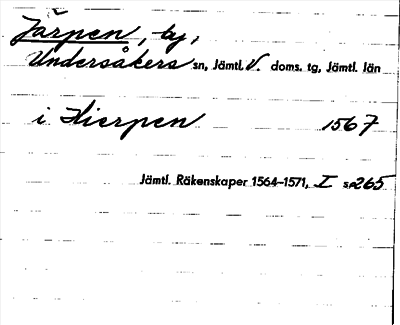 Järpen, by,
Undersåkers sn, Jämtl. V. doms. tg, Jämtl. län
i Hierpen 1567
Jämtl. Räkenskaper 1564–1571, I s. 265